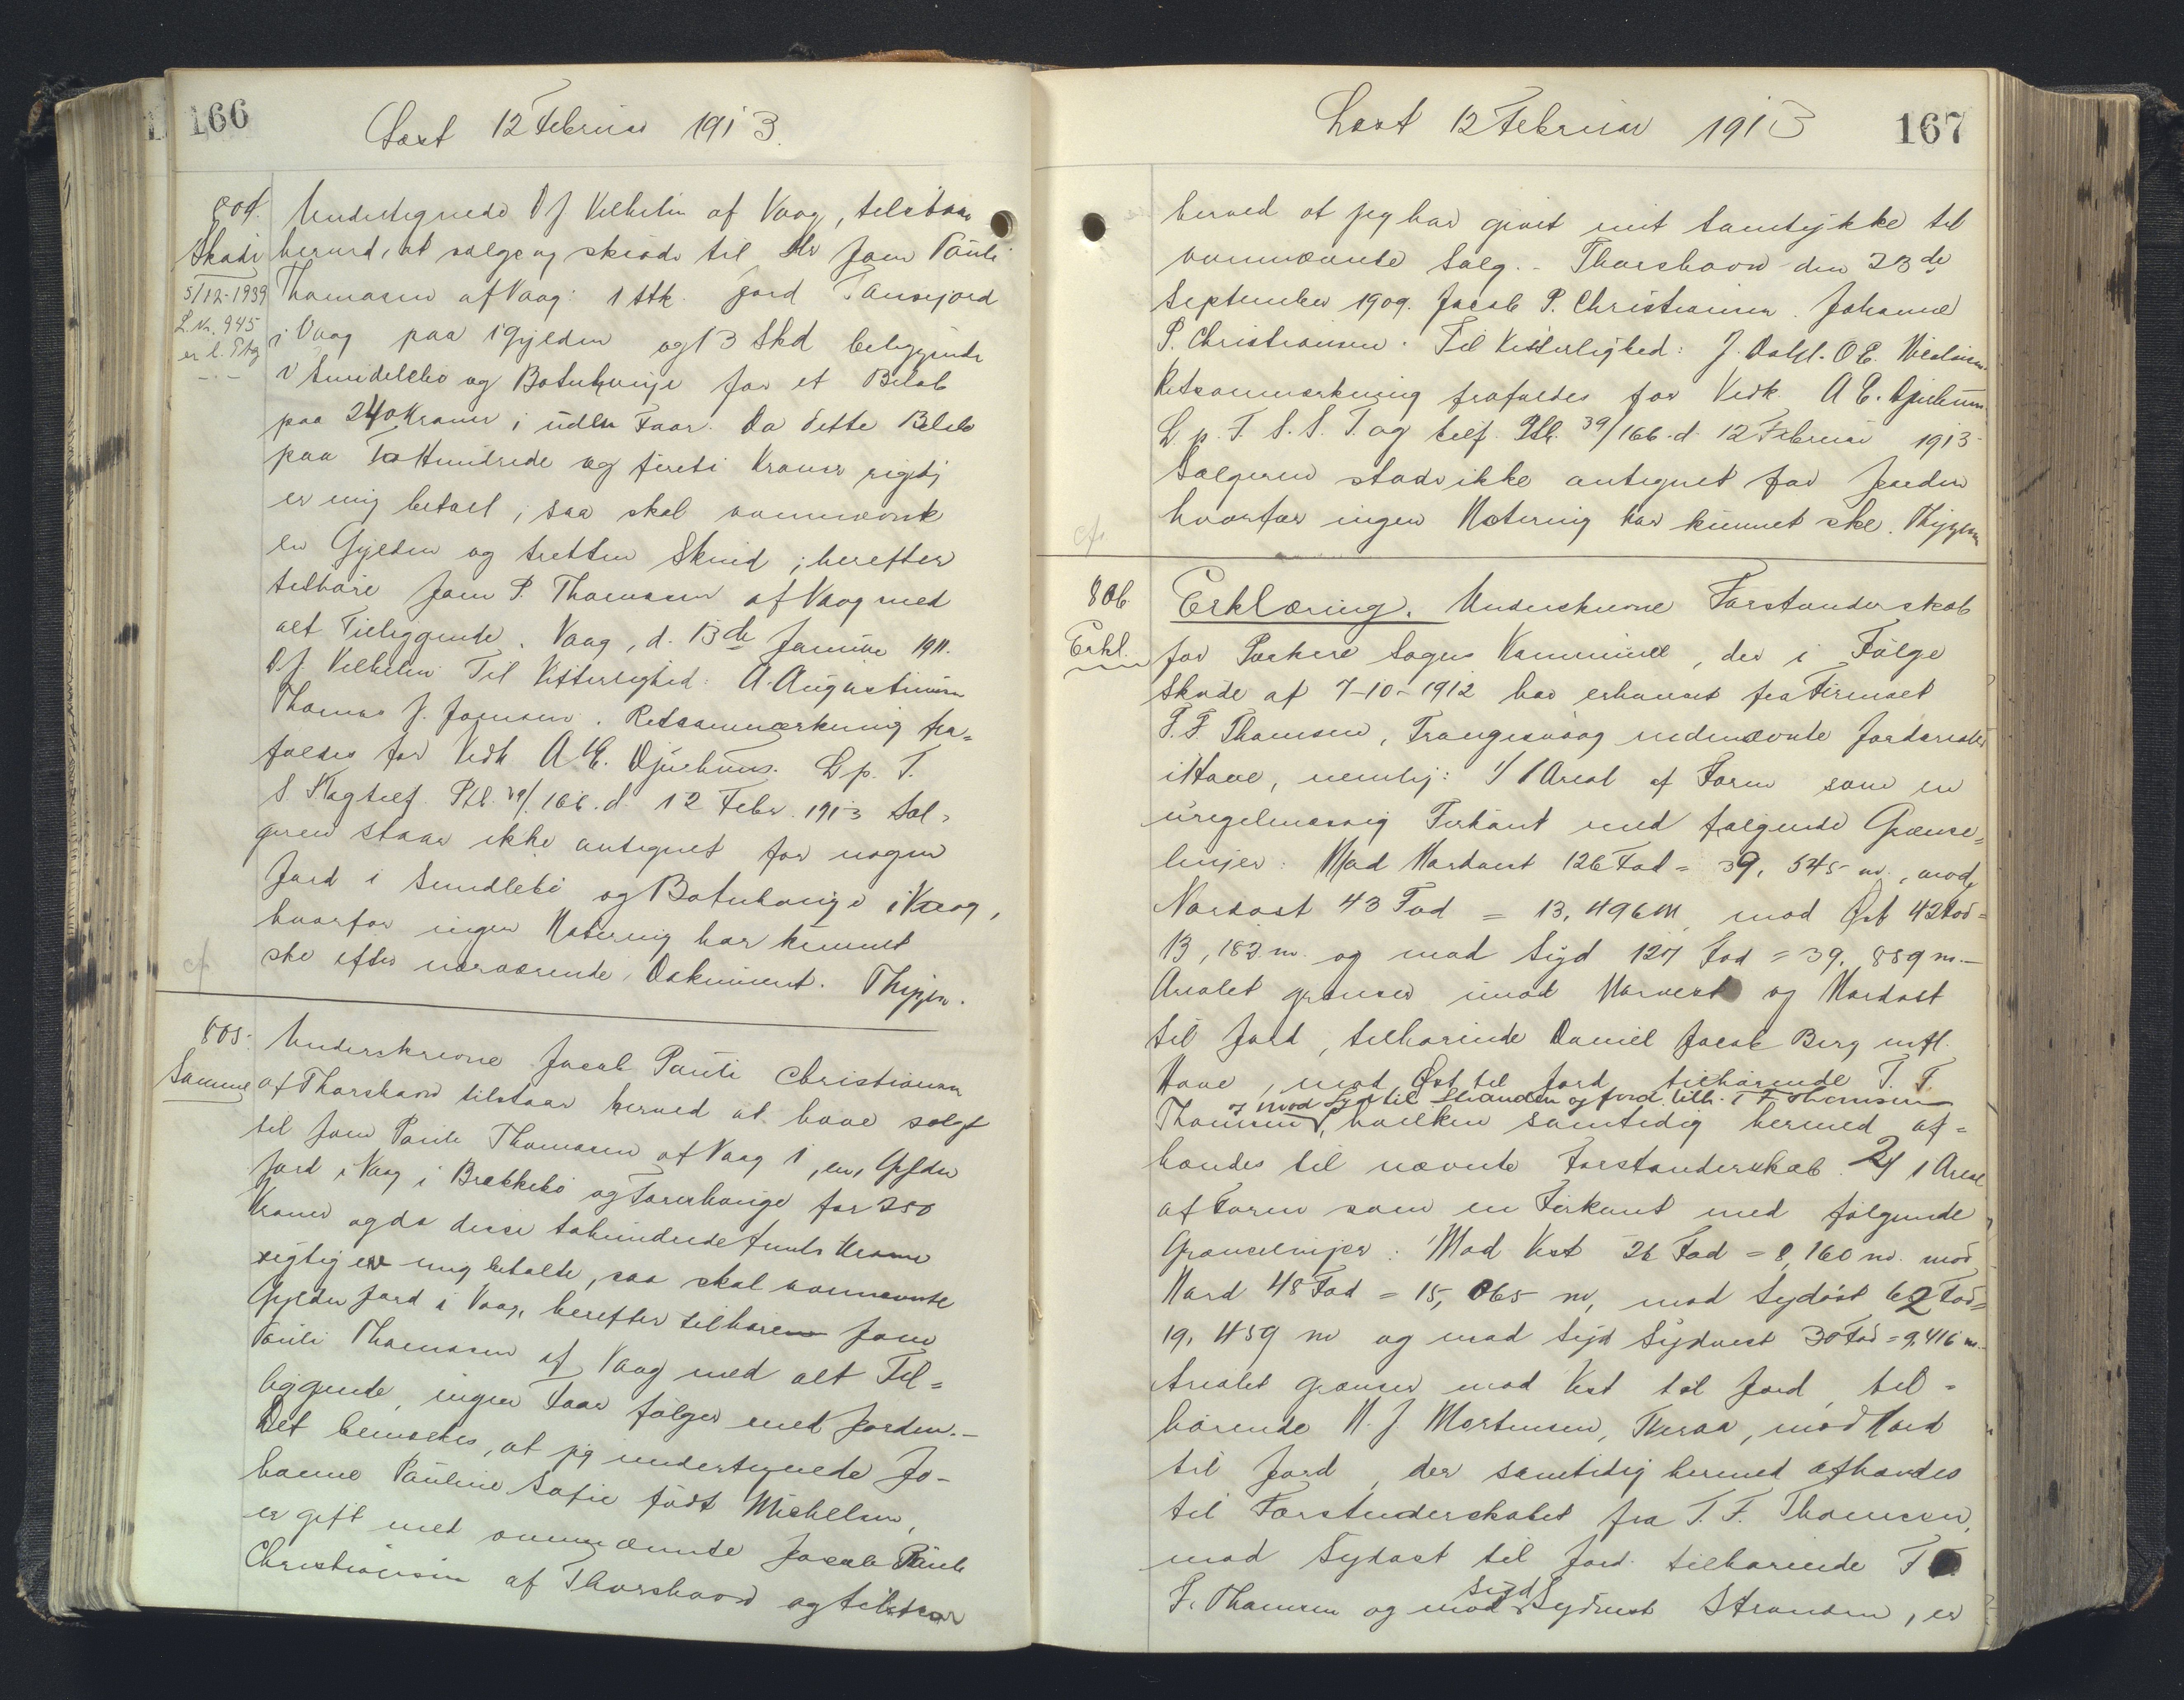 166
Læst 12 Februar 1913.
804.
Skøde
5/12-1939
L.Nr. 945
er l. Ptg
Undertegnede D J Vilhelm af Vaag, tilstaar
herved, at sælge og skiøde til Hr Joen Pauli
Thomasen af Vaag: 1 Stk. Jord
i Vaag paa 1 Gylden og 13 Skd beliggende
i Sundlebø og Botnhauge for et Beløb
paa 240 Kroner, i uden Faar. Da dette Beløb
paa To Hundrede og fireti Kroner rigtig
er mig betalt, saa skal ovennævnte
en Gylden og tretten Skind, herefter
tilhøre Joen P. Thomasen af Vaag med
alt Tilliggende. Vaag, d. 13de Januar 1911.
D J. Vilhelm Til Vitterlighed: A. Augustinusen
Thomas J. Joensen. Retsanmærkning fra=
faldes for Vedk A E. Djurhuus. L p. F.
S. Ptl. 39/166. d 12 Febr. 1913 Sæl=
geren staar ikke antegnet for nogen
Jord i Sundlebø og Botnhauge i Vaag,
hvorfor ingen Notering har kunnet
ske efter nærværende Dokument. Thygesen.
cf.
805.
Samme
Underskrevne Jacob Pauli Christiansen
af Thorshavn tilstaar herved at have solgt
til Joen Pauli Thomasen af Vaag 1, en, Gylden
Jord i Vaag i Brekkebø og Torenhauge for 250
Kroner og da disse tohundredefemti Kroner
rigtig er mig betalte, saa skal ovennævnte
Gylden Jord i Vaag, herefter tilhøre Joen
Pauli Thomasen af Vaag med alt Til=
liggende, ingen Faar følger med Jorden.-
Det bemærkes, at jeg undertegnede Jo-
hanne Pauline Sofie født Michelsen,
er gift med ovennævnte Jacob Pauli
Christiansen af Thorshavn og tilstaar
Læst 12 Februar 1913
167
herved at jeg har givet mit Samtykke til
ovennævnte Salg.- Thorshavn den 23de
September 1909. Jacob P. Christiansen. Johanne
P. Christiansen. Til Vitterlighed: J. Dahl. O E.
Retsanmærkning frafaldes for Vedk. A E. Djurhuus.
L. p. F. S. S. T. og telf. Ptl. 39/166. d. 12 Februar 1913
Sælgeren stod ikke antegnet for Jorden
hvorfor ingen Notering har kunnet ske. Thygesen
cf.
806
Erkl.
Erklæring. Underskrevne Forstanderskab
for Porkere Sogns Kommune, der i Følge
Skøde af 7-10-1912 har erhvervet fra Firmaet
T. F. Thomsen, Trangisvaag nedennævnte Jordarealer
i Hove, nemlig: 1/ 1 Areal af Form som en
uregelmæssig Firkant med følgende Grænse=
linjer: Mod Nordvest 126 Fod = 39,545 m., mod
Nordøst 43 Fod = 13,496 m, mod Øst 42 Fod =
13,182 m. og mod Syd 127 Fod = 39,859 m.-
Arealet grænser imod Norvest og Nordøst
til Jord, tilhørende Daniel Jacob Berg mfl.
Hove, mod Øst til Jord tilhørende T. F.
og mod Syd til Stranden og Jord tilh. T F Thomsen
Thomsen, hvilken samtidig hermed af=
hændes til nævnte Forstanderskab. 2/ 1 Areal
af Form som en Firkant med følgende
Grænselinjer: Mod Vest 26 Fod = 8,160 m. mod
Nord 48 Fod = 15,065 m, mod Sydøst 62 Fod =
19,459 m og mod Syd Sydvest 30 Fod = 9,416 m.
Arealet grænser mod Vest til Jord, til=
hørende N. J Mortensen, Tveraa, mod Nord
til Jord, der samtidig hermed afhændes
til Forstanderskabet fra T. F. Thomsen,
mod Sydøst til Jord tilhørende T
F. Thomsen og mod Syd Sydvest Stranden, er